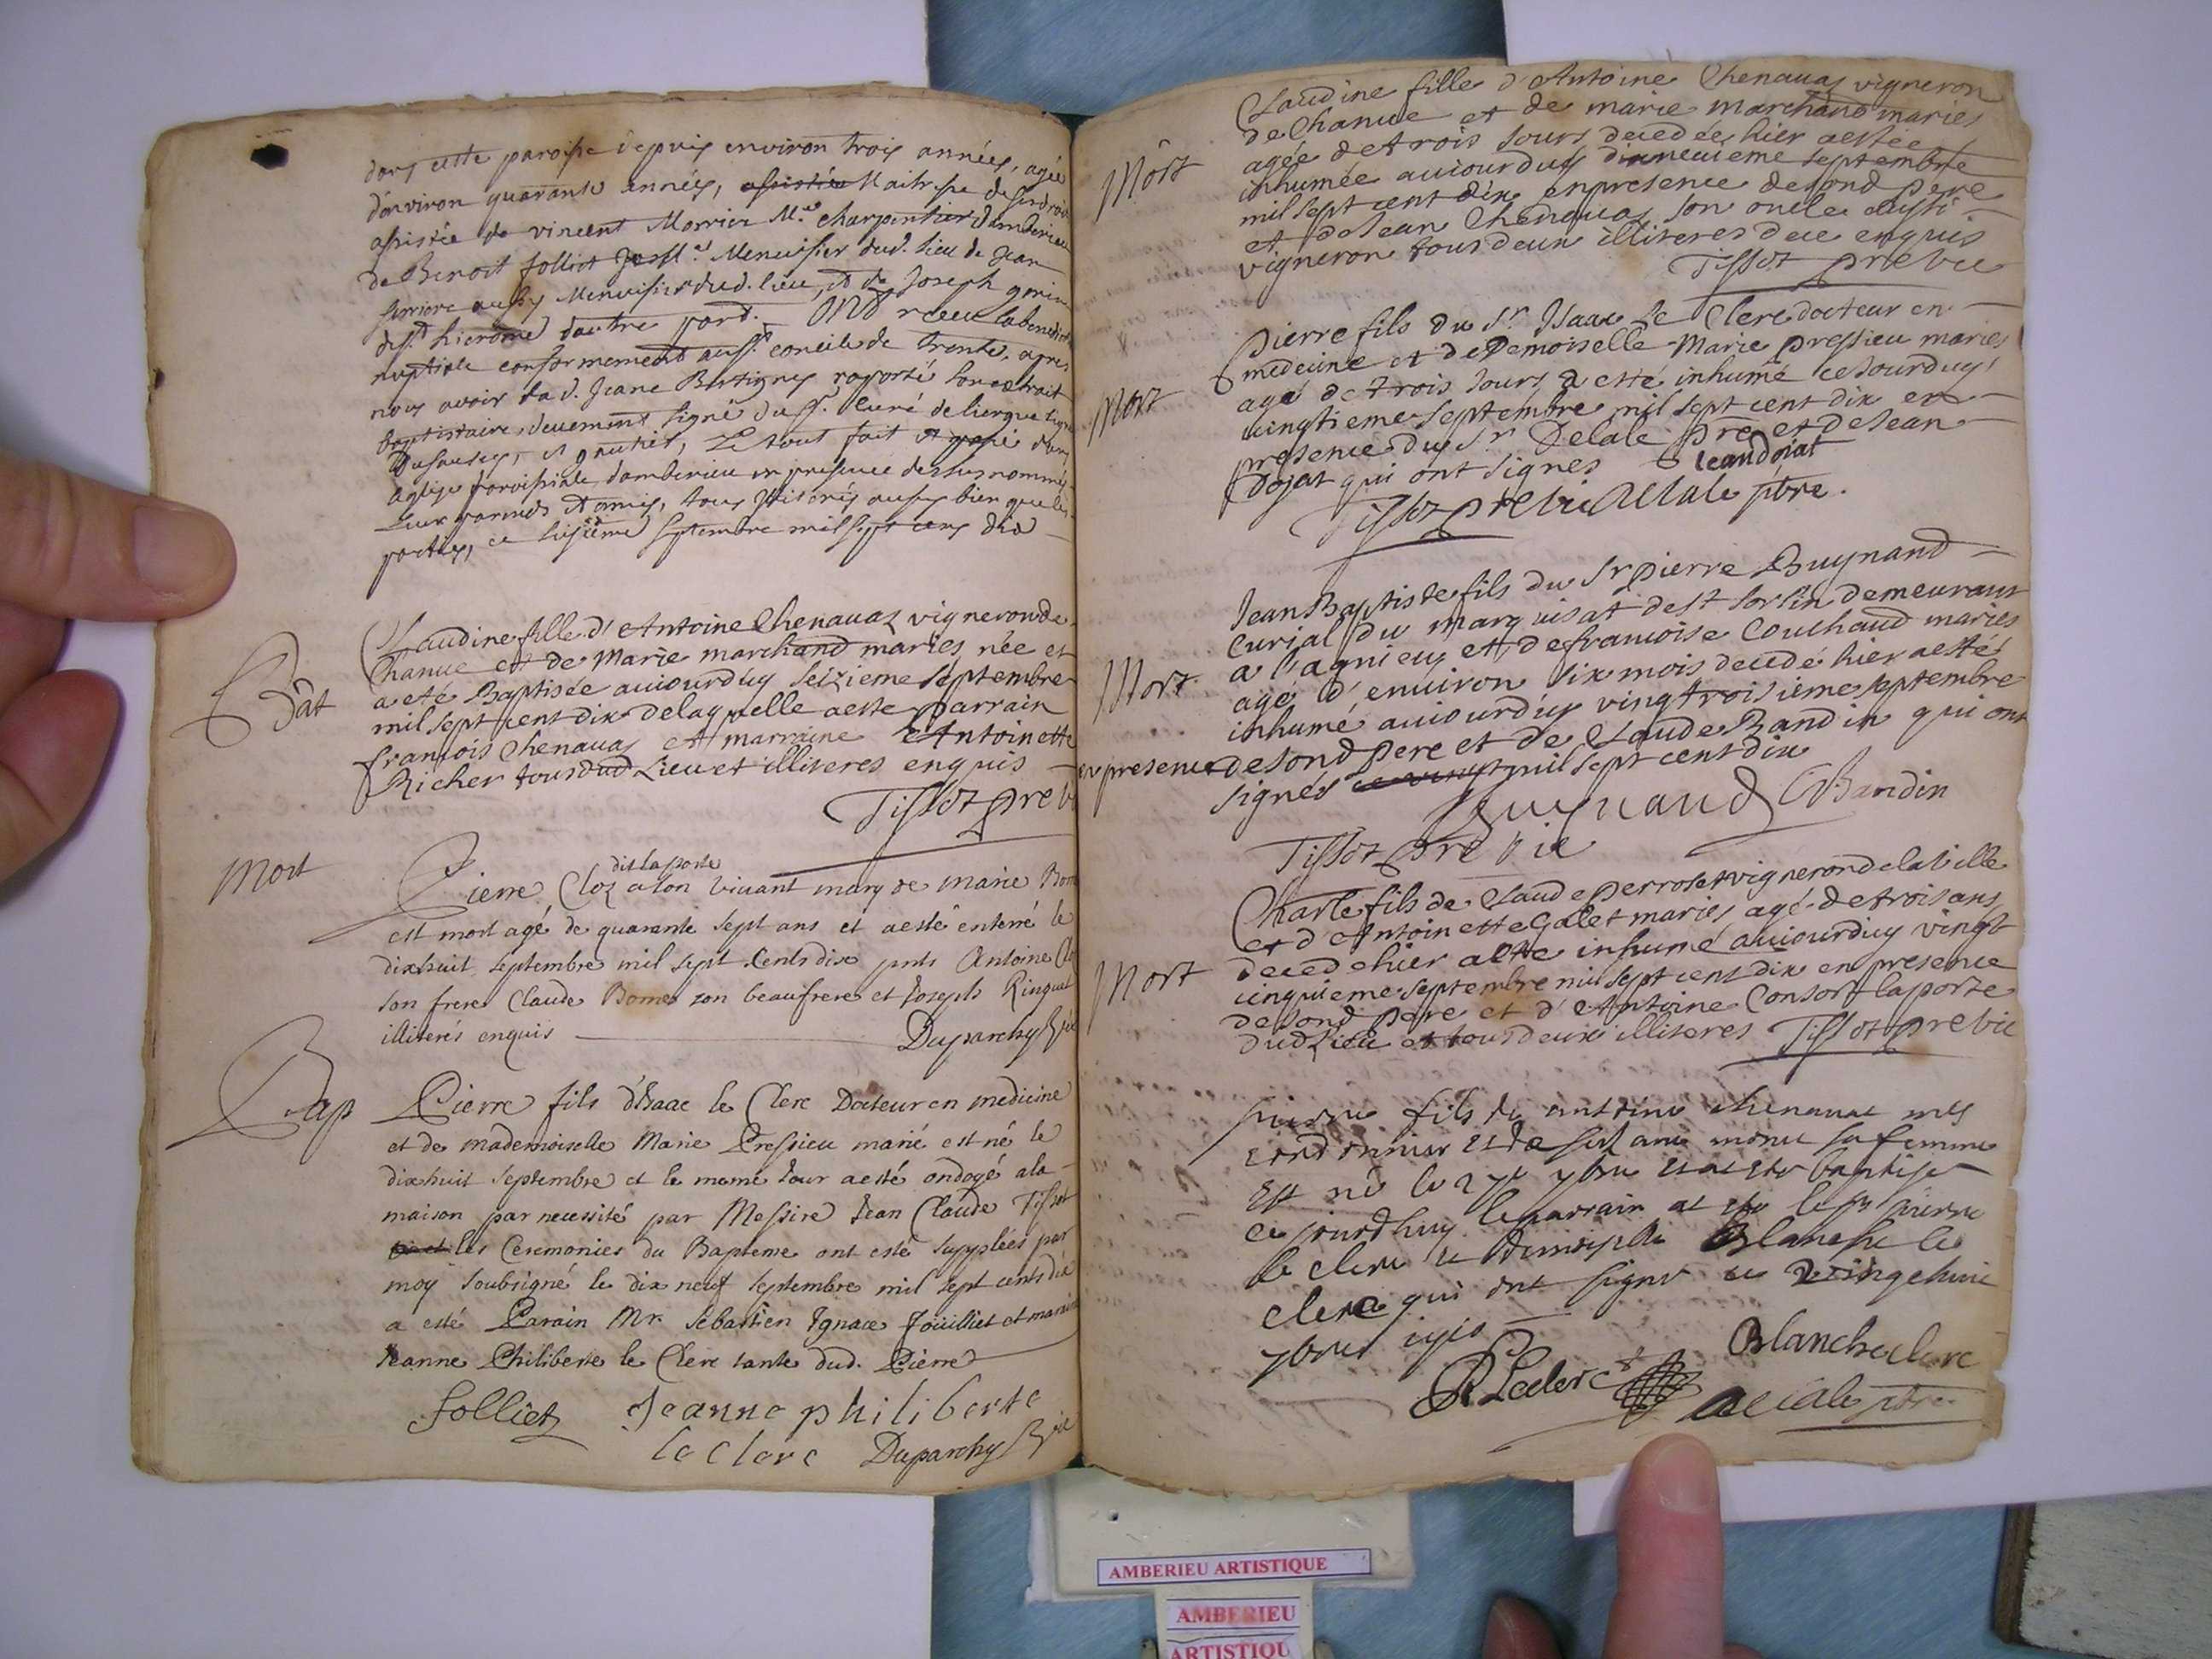 dans cette paroisse depuis environ trois années, agée
d'environ quarante années,
assistée de vincent Morrier Me. charpentier d'amberieu
de Benoit folliet Me. Menuisier dud. lieu de Jean
aussy Menuisier dud. lieu, et de Joseph
dautre part. ONt receu la benedict
nuptiale conformement aud. concile de trente, apres
nous avoir lad. Jeane rapporté son extrait
baptistaire, deuement signé du sr. curé de
Le tout fait et passé dans
leglise parroissiale damberieu en presence des susnommés
leur parents et amis, tous illiterés aussy bien que les
parties, ce septembre mil sept cens dix
Bât
Claudine fille d'Antoine Chenauaz vigneron de
Chanue et de Marie marchand mariés née et
a eté Baptisée auiourduy seizieme septembre
mil sept cent dix de laquelle a esté parrain
francois Chenauaz et marraine Antoinette
Richer tous dud Lieu et illiteres enquis
Tissot pre vi
Mort
dit laporte
Pierre Cloz a son viuant mary de marie Bome
est mort agé de quarante sept ans et a esté enterré le
dixhuit septembre mil sept cents dix pnts Antoine Clo
son frere Claude Bome son beaufrere et Joseph Ringuet
illiterés enquis
Duparchy vic
Bap
Pierre fils d'Isaac le Clerc Docteur en medicine
et de mademoiselle Marie Pressieu marié est né le
dixhuit septembre et le meme iour a esté ondoyé a la
maison par necessité par Messire Jean Claude Tissot
les Ceremonies du Bapteme ont esté supplées par
moy soubsigné le dix neuf septembre mil sept cents dix
a esté Parain Mr. Sebastien Ignace foüilliet et maraine
Jeanne Philiberte le Clerc tante dud. Pierre
folliet Jeanne philiberte
le Clerc Duparchy vic
Claudine fille d'Antoine Chenauaz vigneron
de Chanue et de marie marchand mariés
Môrt
agée de trois Jours decedée hier a esté
inhumée auiourduy dixneuieme septembre
mil sept cent dix en presence de sond pere
et de Jean Chenauaz son oncle aussi
vigneron tous deux illiteres de ce enquis
Tissot pre vic
Pierre fils du Sr Isaac Le Clerc docteur en
medecine et de Demoiselle Marie pressieu mariés
Mort
agé de trois Jours a esté inhumé ce Jourduy
vingtieme septembre mil sept cent dix en
presence du Sr Delale pre et de Jean
Dojat qui ont signes Jean dojat
Tissot pre vic Delale ptre.
Jean Baptiste fils du Sr pierre Buynand
Curial du marquisat de St sorlin demeurant
a Lagnieu et de francoise Couchaud mariés
Mort
agé d'enuiron six mois decedé hier a esté
inhumé auiourduy vingtroisieme septembre
en presence de sond pere et de Claude Bandin qui ont
signés ce vingt mil sept cent dix
Buynand CBandin
Tissot pre vic
Charle fils de Claude perroset vigneron de la ville
et d'Antoinette Galet mariés agé de trois ans
Mort
decedé hier a esté inhumé auiourduy vingt
cinquieme septembre mil sept cent dix en presence
de sond pere et d'Antoine Consort laporte
dud Lieu et tous deux illiteres Tissot pre vic
pierre fils de antoine chenauat
cordonnier et de sa femme
Est né le 27e 7bre et a esté baptisé
ce jourdhuy. le parrain at esté le sr pierre
le clerc et demoiselle Blanche le
clerc qui ont signé ce vingthuit
7bre 1710
P. Leclerc Blancheclerc
Delale ptre
AMBERIEU ARTISTIQUE
AMBERIEU
ARTISTIQU